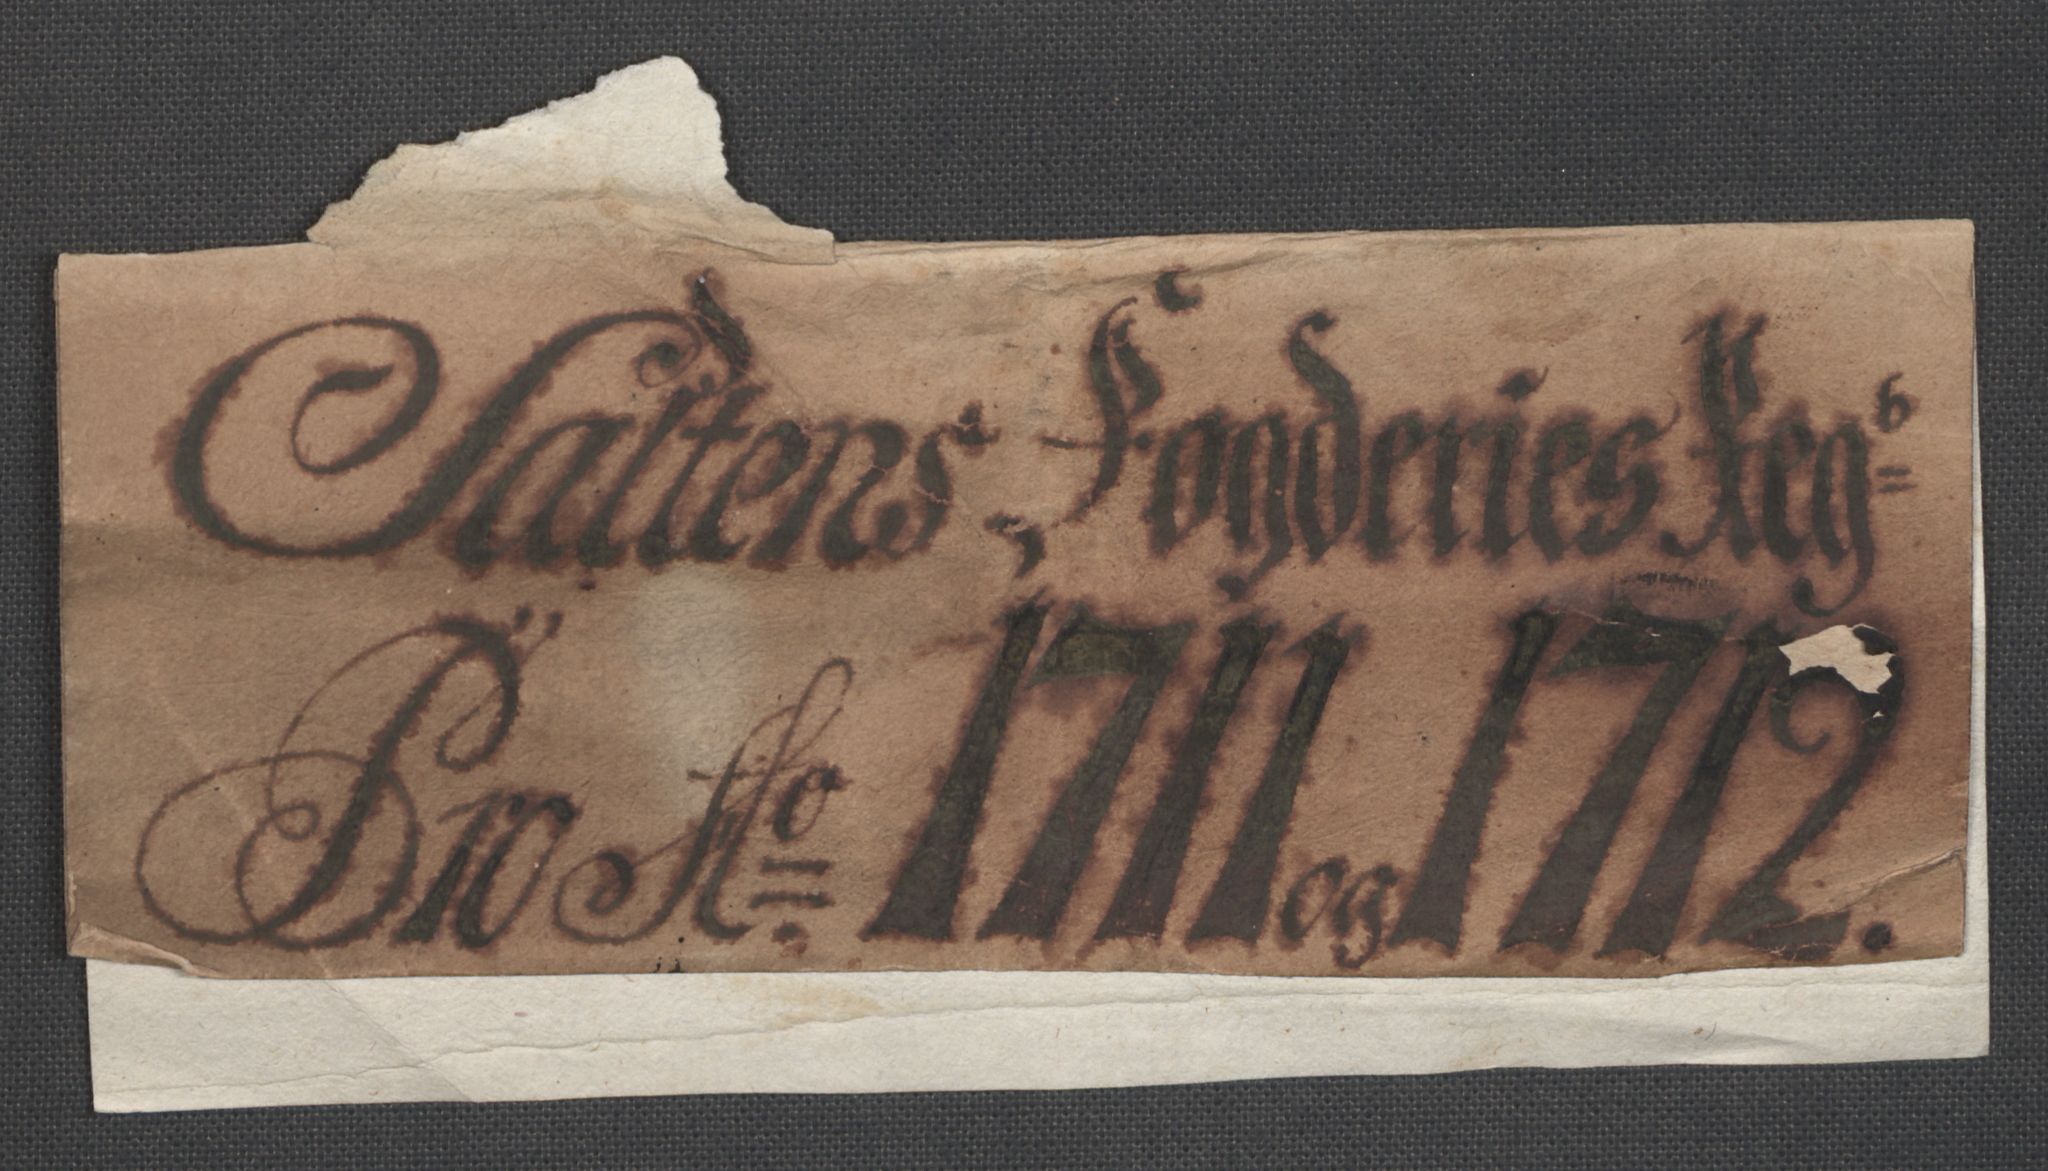 Saltens, Fogderies Regb=
Pro Ao= 1711 og 1712.